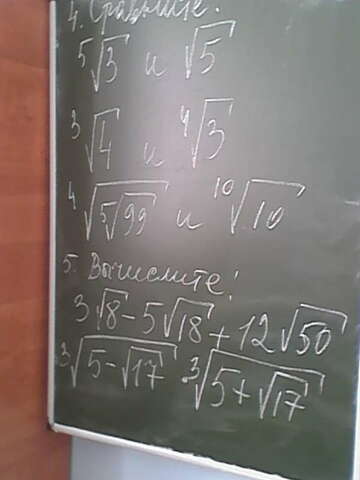 4. Сравните:
⁵√3 и √5
³√4 и ⁴√3
⁴√(⁵√99) и ¹⁰√10
5. Вычислите:
3√8 - 5√18 + 12√50
³√(5-√17) · ³√(5+√17)